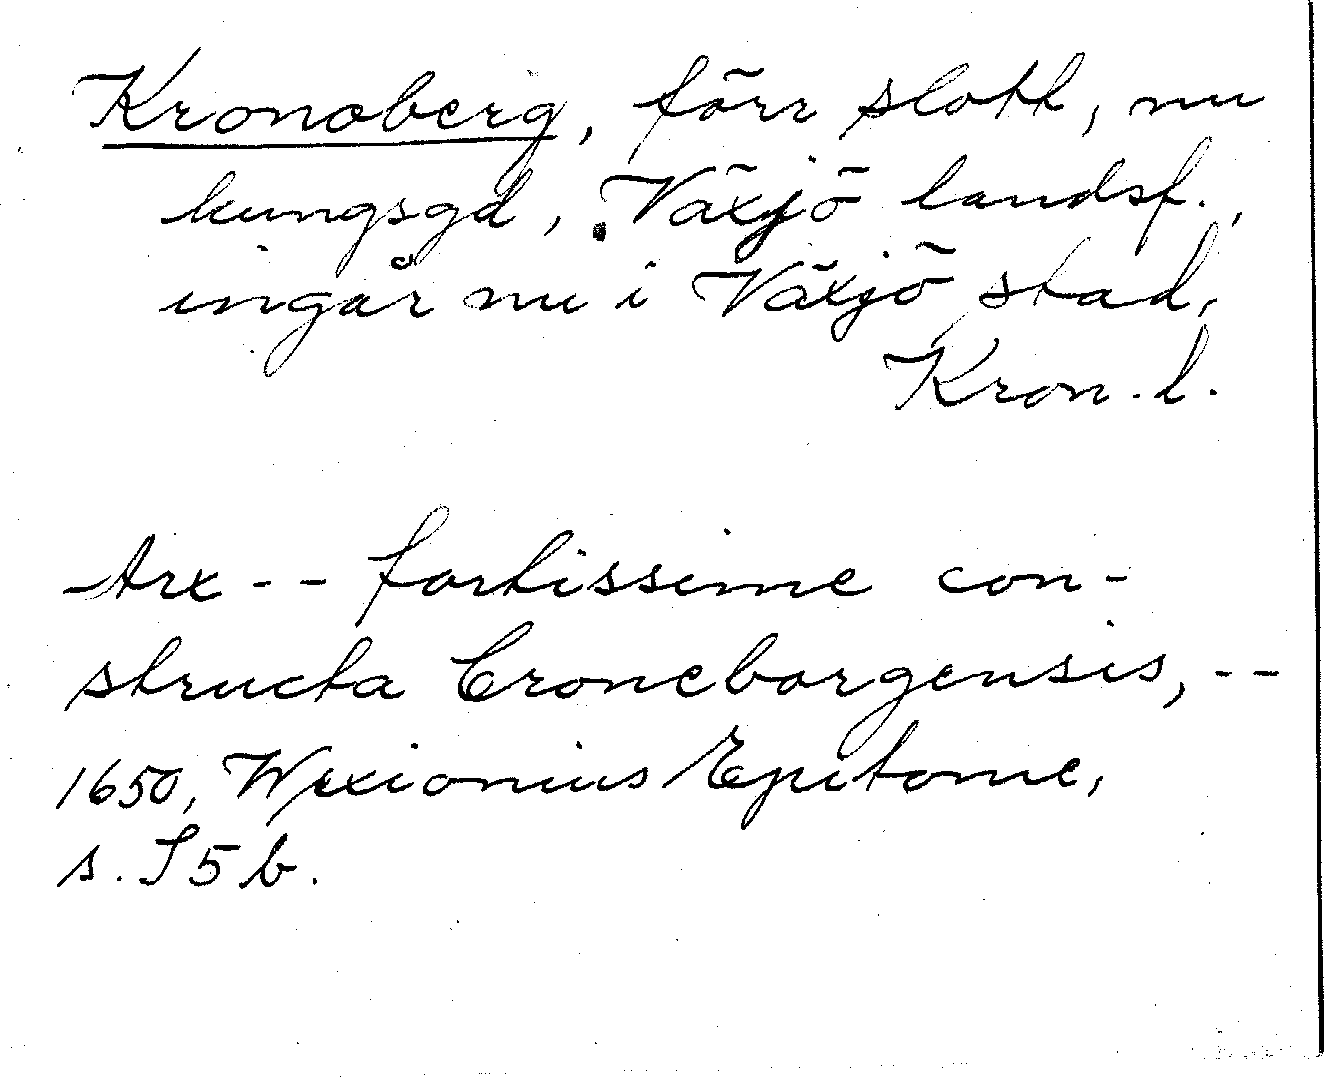 Kronoberg, förr slott, nu
kungsgd, Växjö landsf.,
ingår nu i Växjö stad,
Kron. l.
Arx -- fortissime con-
structa Croneborgensis, --
1650, Wexionius Epitome,
s. S 5 b.